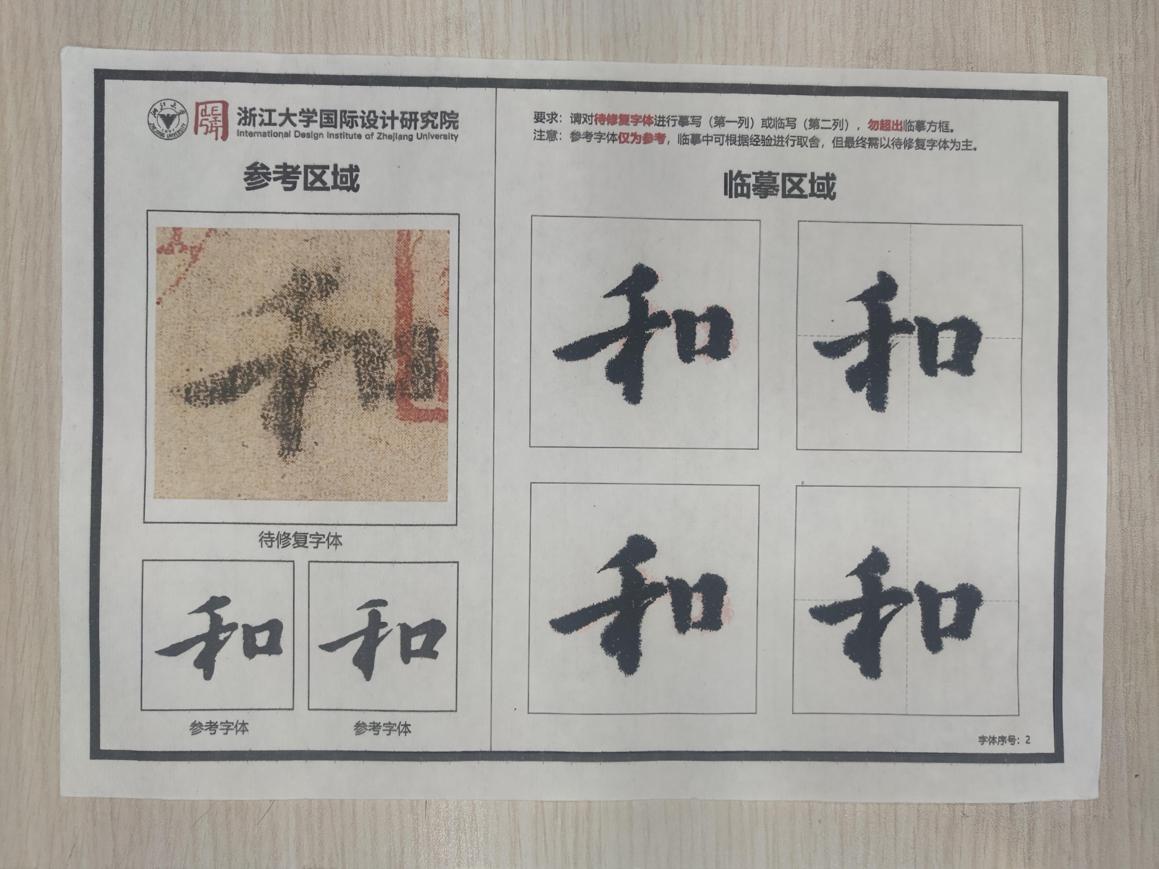 浙江大学国际设计研究院
International Design Institute of Zhejiang University
参考区域
和
待修复字体
和
和
参考字体
参考字体
要求：请对待修复字体进行摹写（第一列）或临写（第二列），勿超出临摹方框。
注意：参考字体仅为参考，临摹中可根据经验进行取舍，但最终需以待修复字体为主。
临摹区域
和
和
和
和
字体序号：2